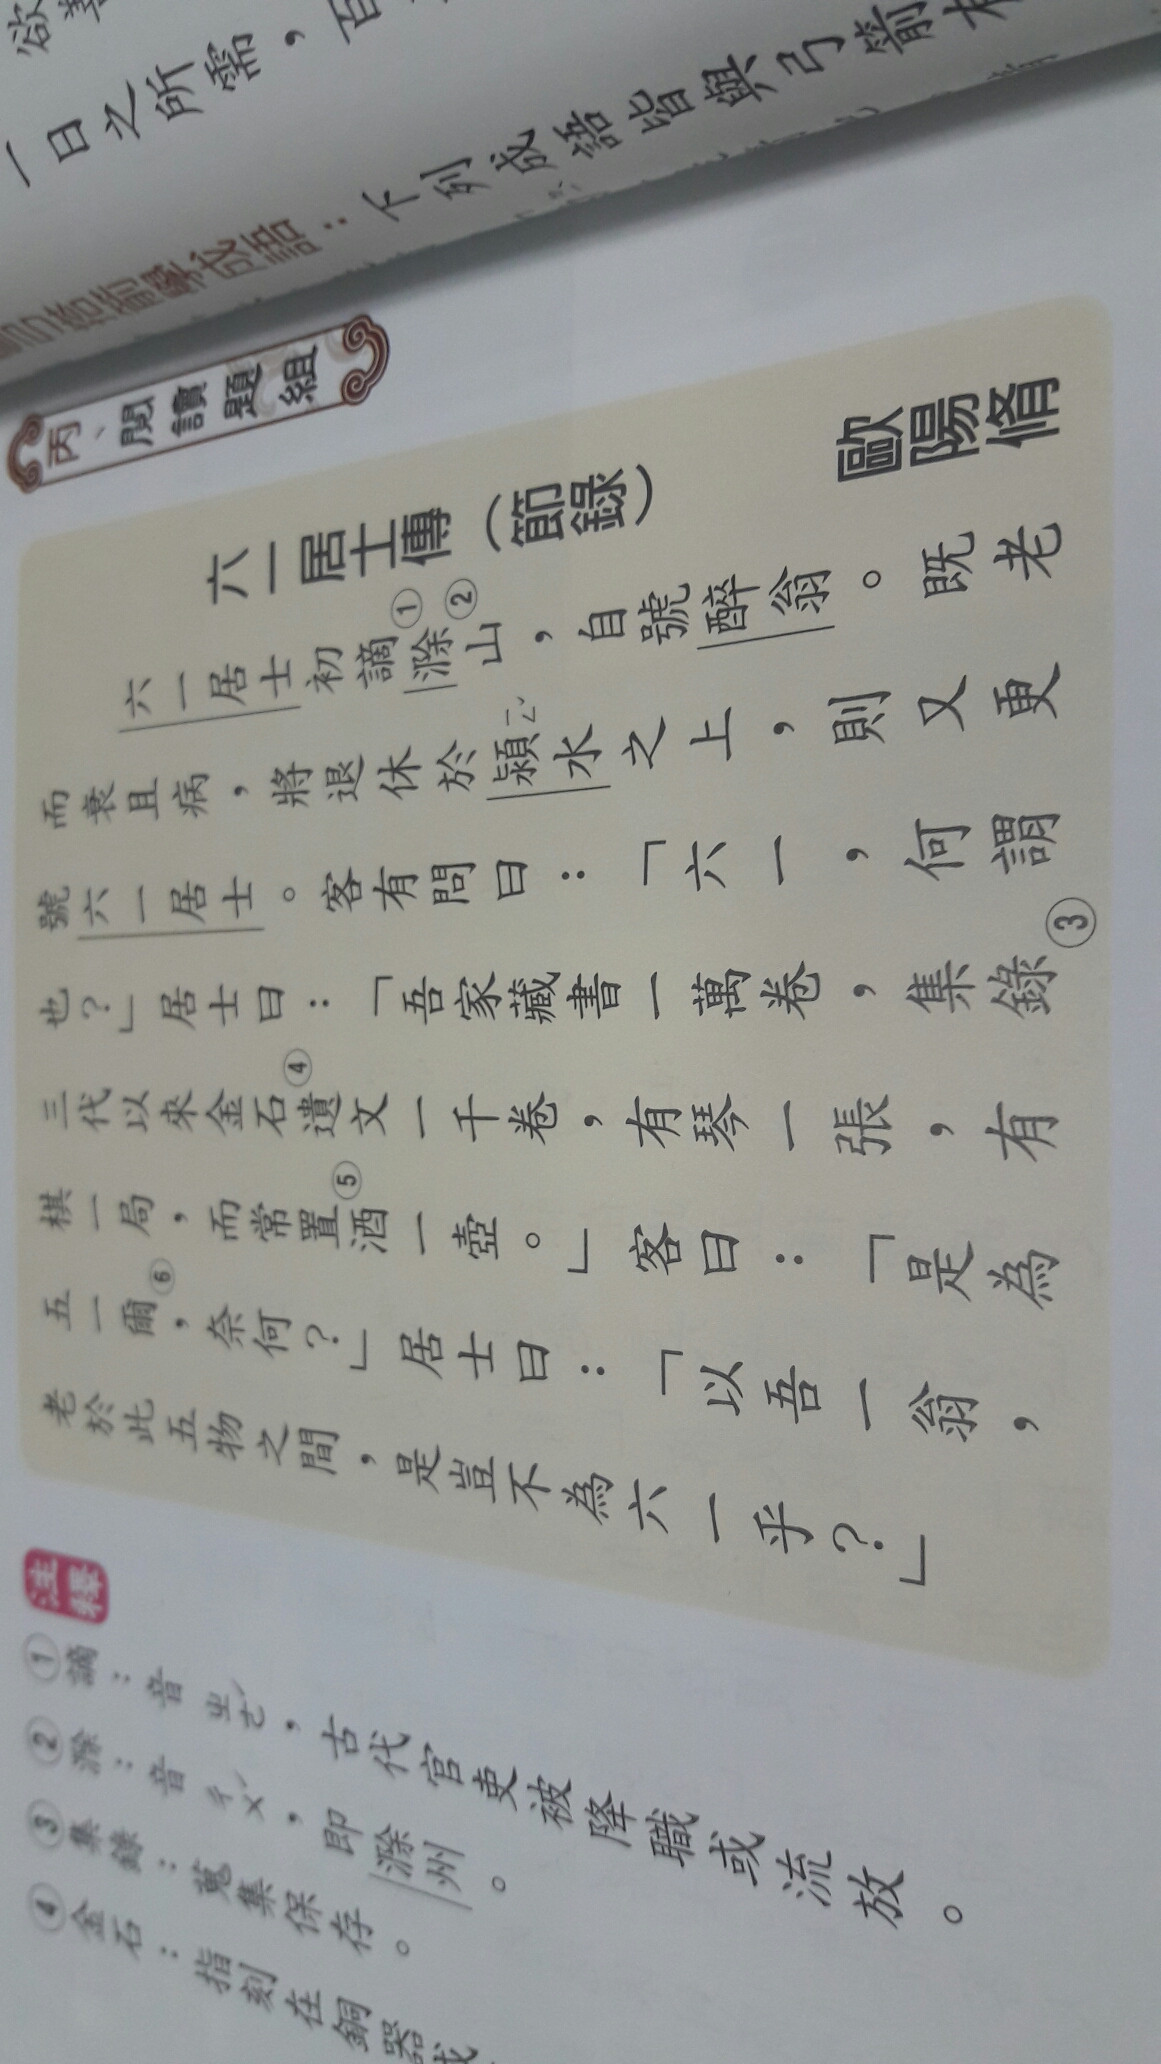 一日之所需，百
學成語：下列成語皆與弓箭有
丙、閱讀題組
六一居士傳（節錄） 歐陽脩
六一居士初謫①滁②山，自號醉翁。既老
而衰且病，將退休於潁ㄧㄥˇ水之上，則又更
號六一居士。客有問曰：「六一，何謂
也？」居士曰：「吾家藏書一萬卷，集錄③
三代以來金石④遺文一千卷，有琴一張，有
棋一局，而常置⑤酒一壺。」客曰：「是為
五一爾⑥，奈何？」居士曰：「以吾一翁，
老於此五物之間，是豈不為六一乎？」
注釋
①謫：音ㄓㄜˊ，古代官吏被降職或流放。
②滁：音ㄔㄨˊ，即滁州。
③集錄：蒐集保存。
④金石：指刻在銅器或